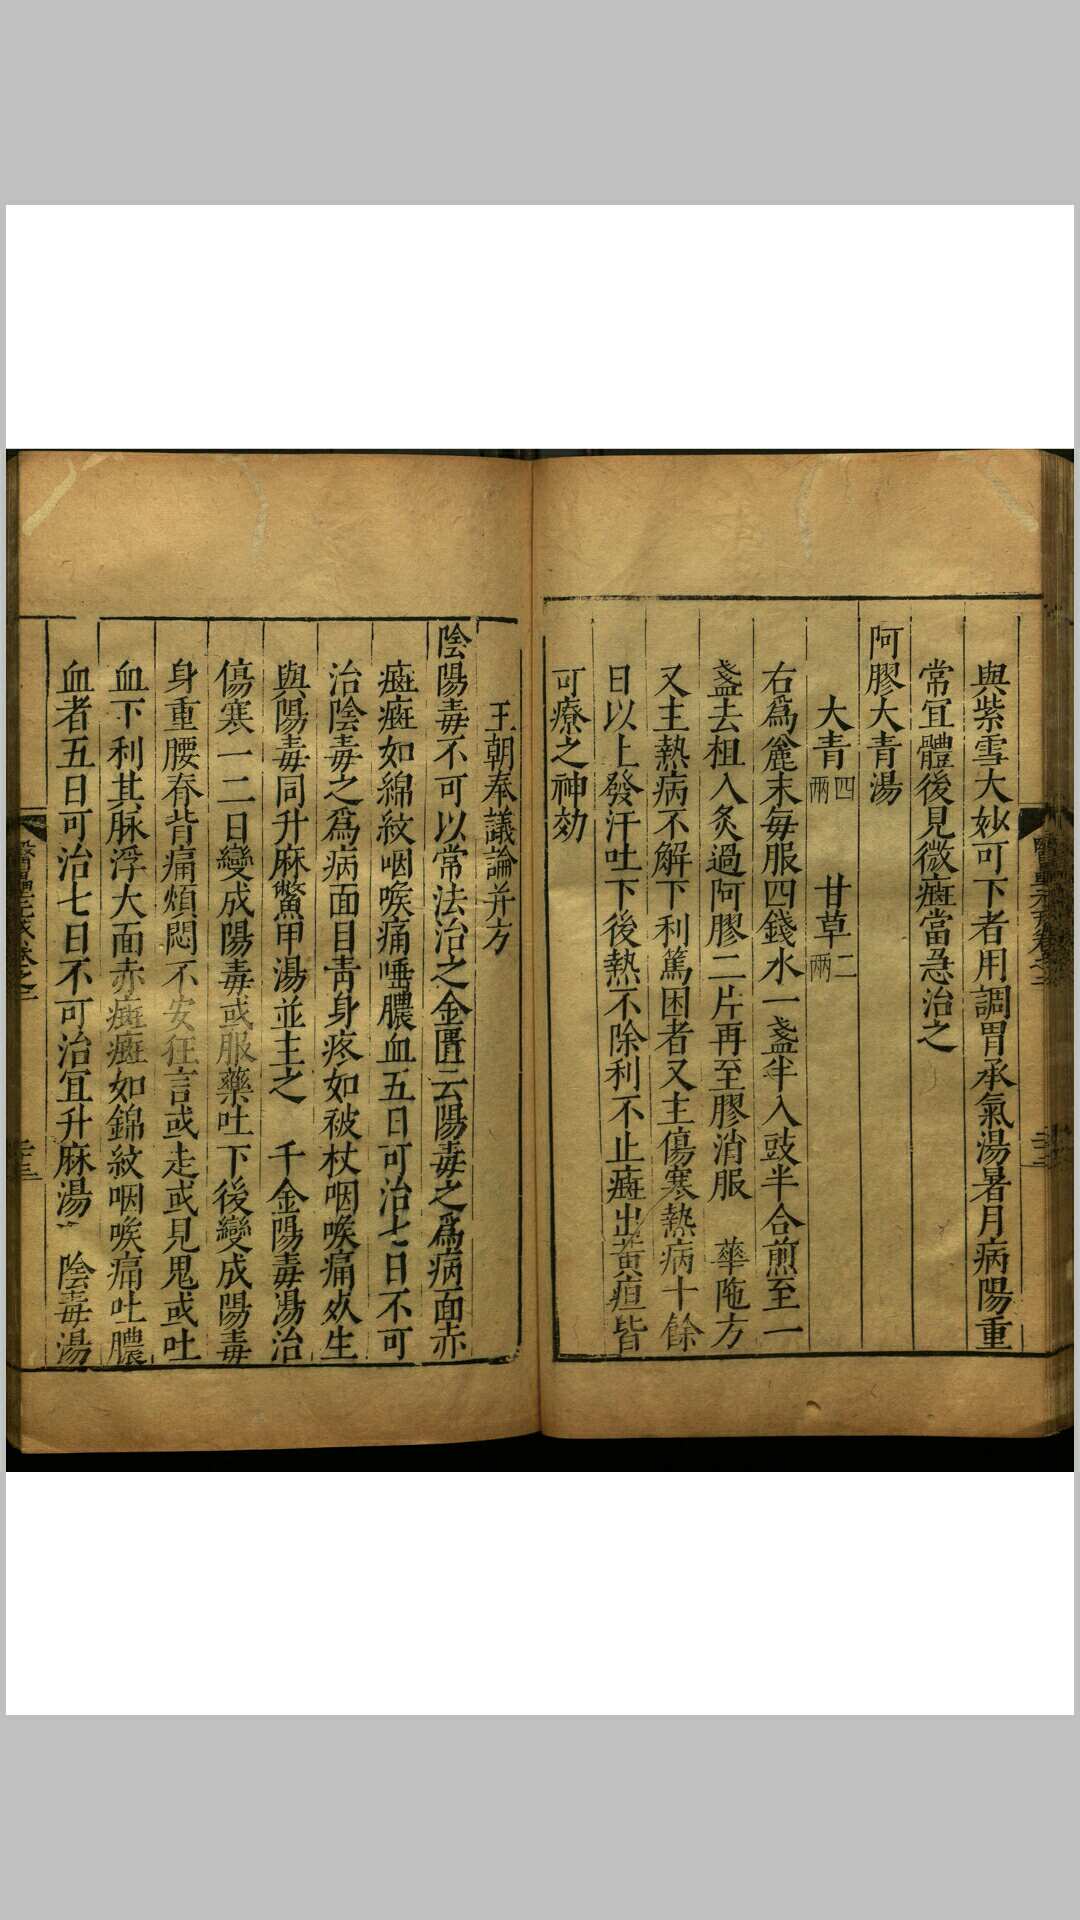 與紫雪大妙可下者用調胃承氣湯暑月病陽重
常宜體後見微癍當急治之
阿膠大青湯
大青四兩 甘草二兩
右爲麄末每服四錢水一盞半入豉半合煎至一
盞去柤入炙過阿膠二片再至膠消服 華陁方
又主熱病不解下利篤困者又主傷寒熱病十餘
日以上發汗吐下後熱不除利不止癍出黃疸皆
可療之神効
王朝奉議論并方
陰陽毒不可以常法治之金匱云陽毒之爲病面赤
癍癍如綿紋咽喉痛唾膿血五日可治七日不可
治陰毒之爲病面目靑身疼如被杖咽喉痛如生
與陽毒同升麻鱉甲湯並主之 千金陽毒湯治
傷寒一二日變成陽毒或服藥吐下後變成陽毒
身重腰脊背痛煩悶不安狂言或走或見鬼或吐
血下利其脉浮大面赤癍癍如錦紋咽喉痛吐膿
血者五日可治七日不可治宜升麻湯 陰毒湯